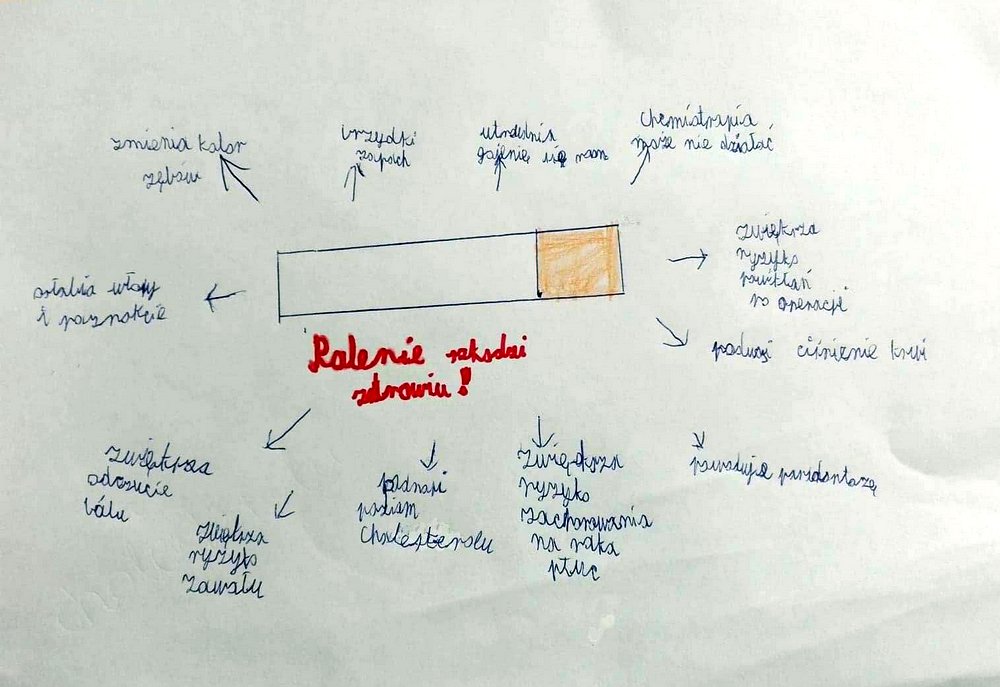 zmienia kolor
zębów
brzydki
zapach
utrudnia
gojenie się ran
chemioterapia
może nie działać
osłabia włosy
i paznokcie
zwiększa
ryzyko
powikłań
po operacji
podwyż ciśnienie krwi
Palenie szkodzi
zdrowiu!
zwiększa
odczucie
bólu
zwiększa
ryzyko
zawału
podnosi
poziom
cholesterolu
zwiększa
ryzyko
zachorowania
na raka
płuc
powoduje paradontozę